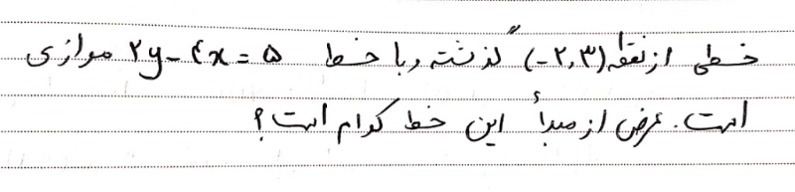 خطی از نقطهٔ (-۲,۳) گذشته و با خط ۲y-۴x=۵ موازی
است. عرض از مبدأ این خط کدام است؟